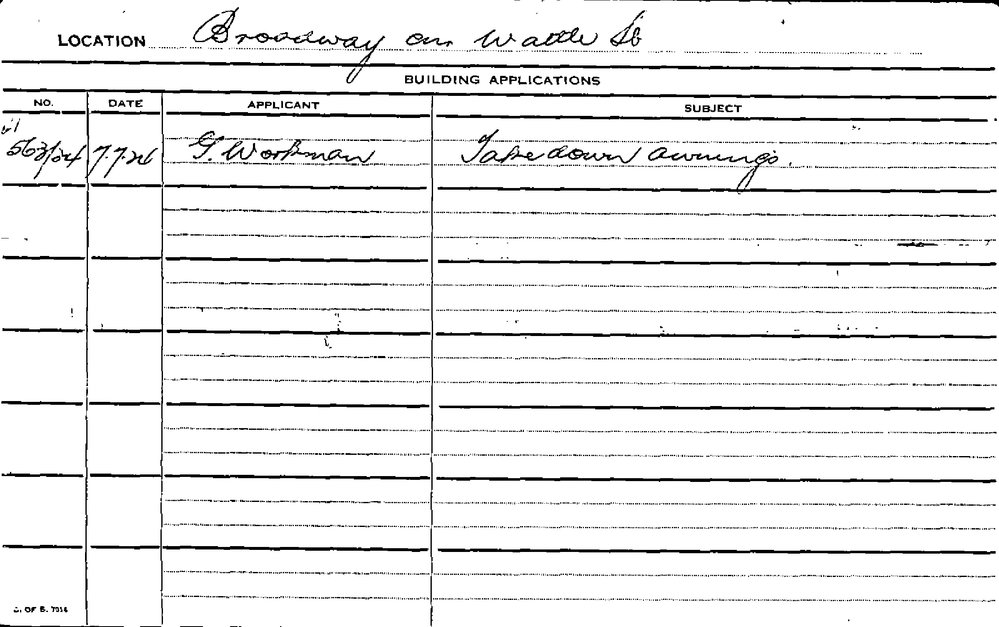 LOCATION Broadway cnr Wattle St
BUILDING APPLICATIONS
NO. DATE APPLICANT SUBJECT
563/24 7.7.26 G. Workman Take down awnings.